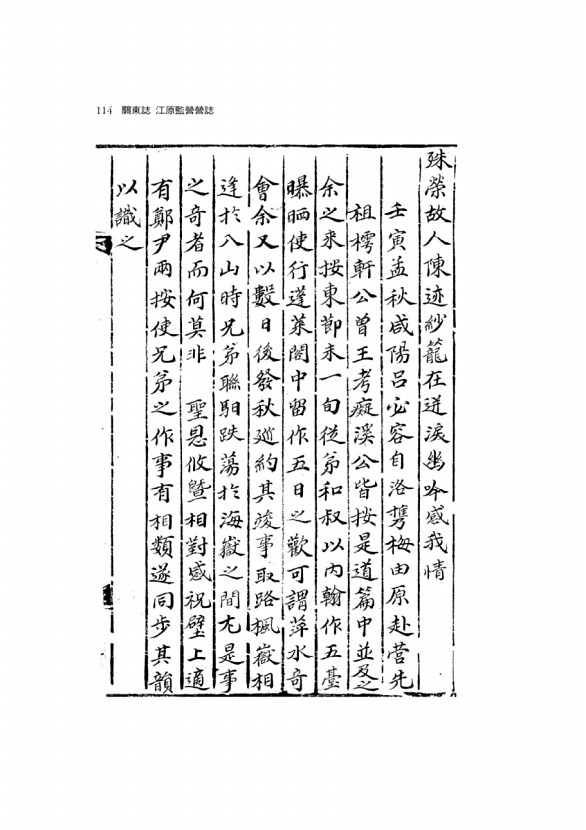 114 關東誌 江原監營營誌
殊榮故人陳迹紗籠在迸淚幽吟感我情
壬寅孟秋咸陽呂必容自洛携梅由原赴营先
祖樗軒公曾王考癡溪公皆按是道篇中並及之
余之来按東節未一旬從弟和叔以內翰作五臺
曝晒使行蓬萊閣中留作五日之歡可謂萍水奇
會余又以數日後發秋廵約其竣事取路楓嶽相
逢於八山時兄弟聯馹跌蕩於海嶽之間尤是事
之奇者而何莫非 聖恩攸曁相對感祝壁上適
有鄭尹兩按使兄弟之作事有相類遂同步其韻
以識之